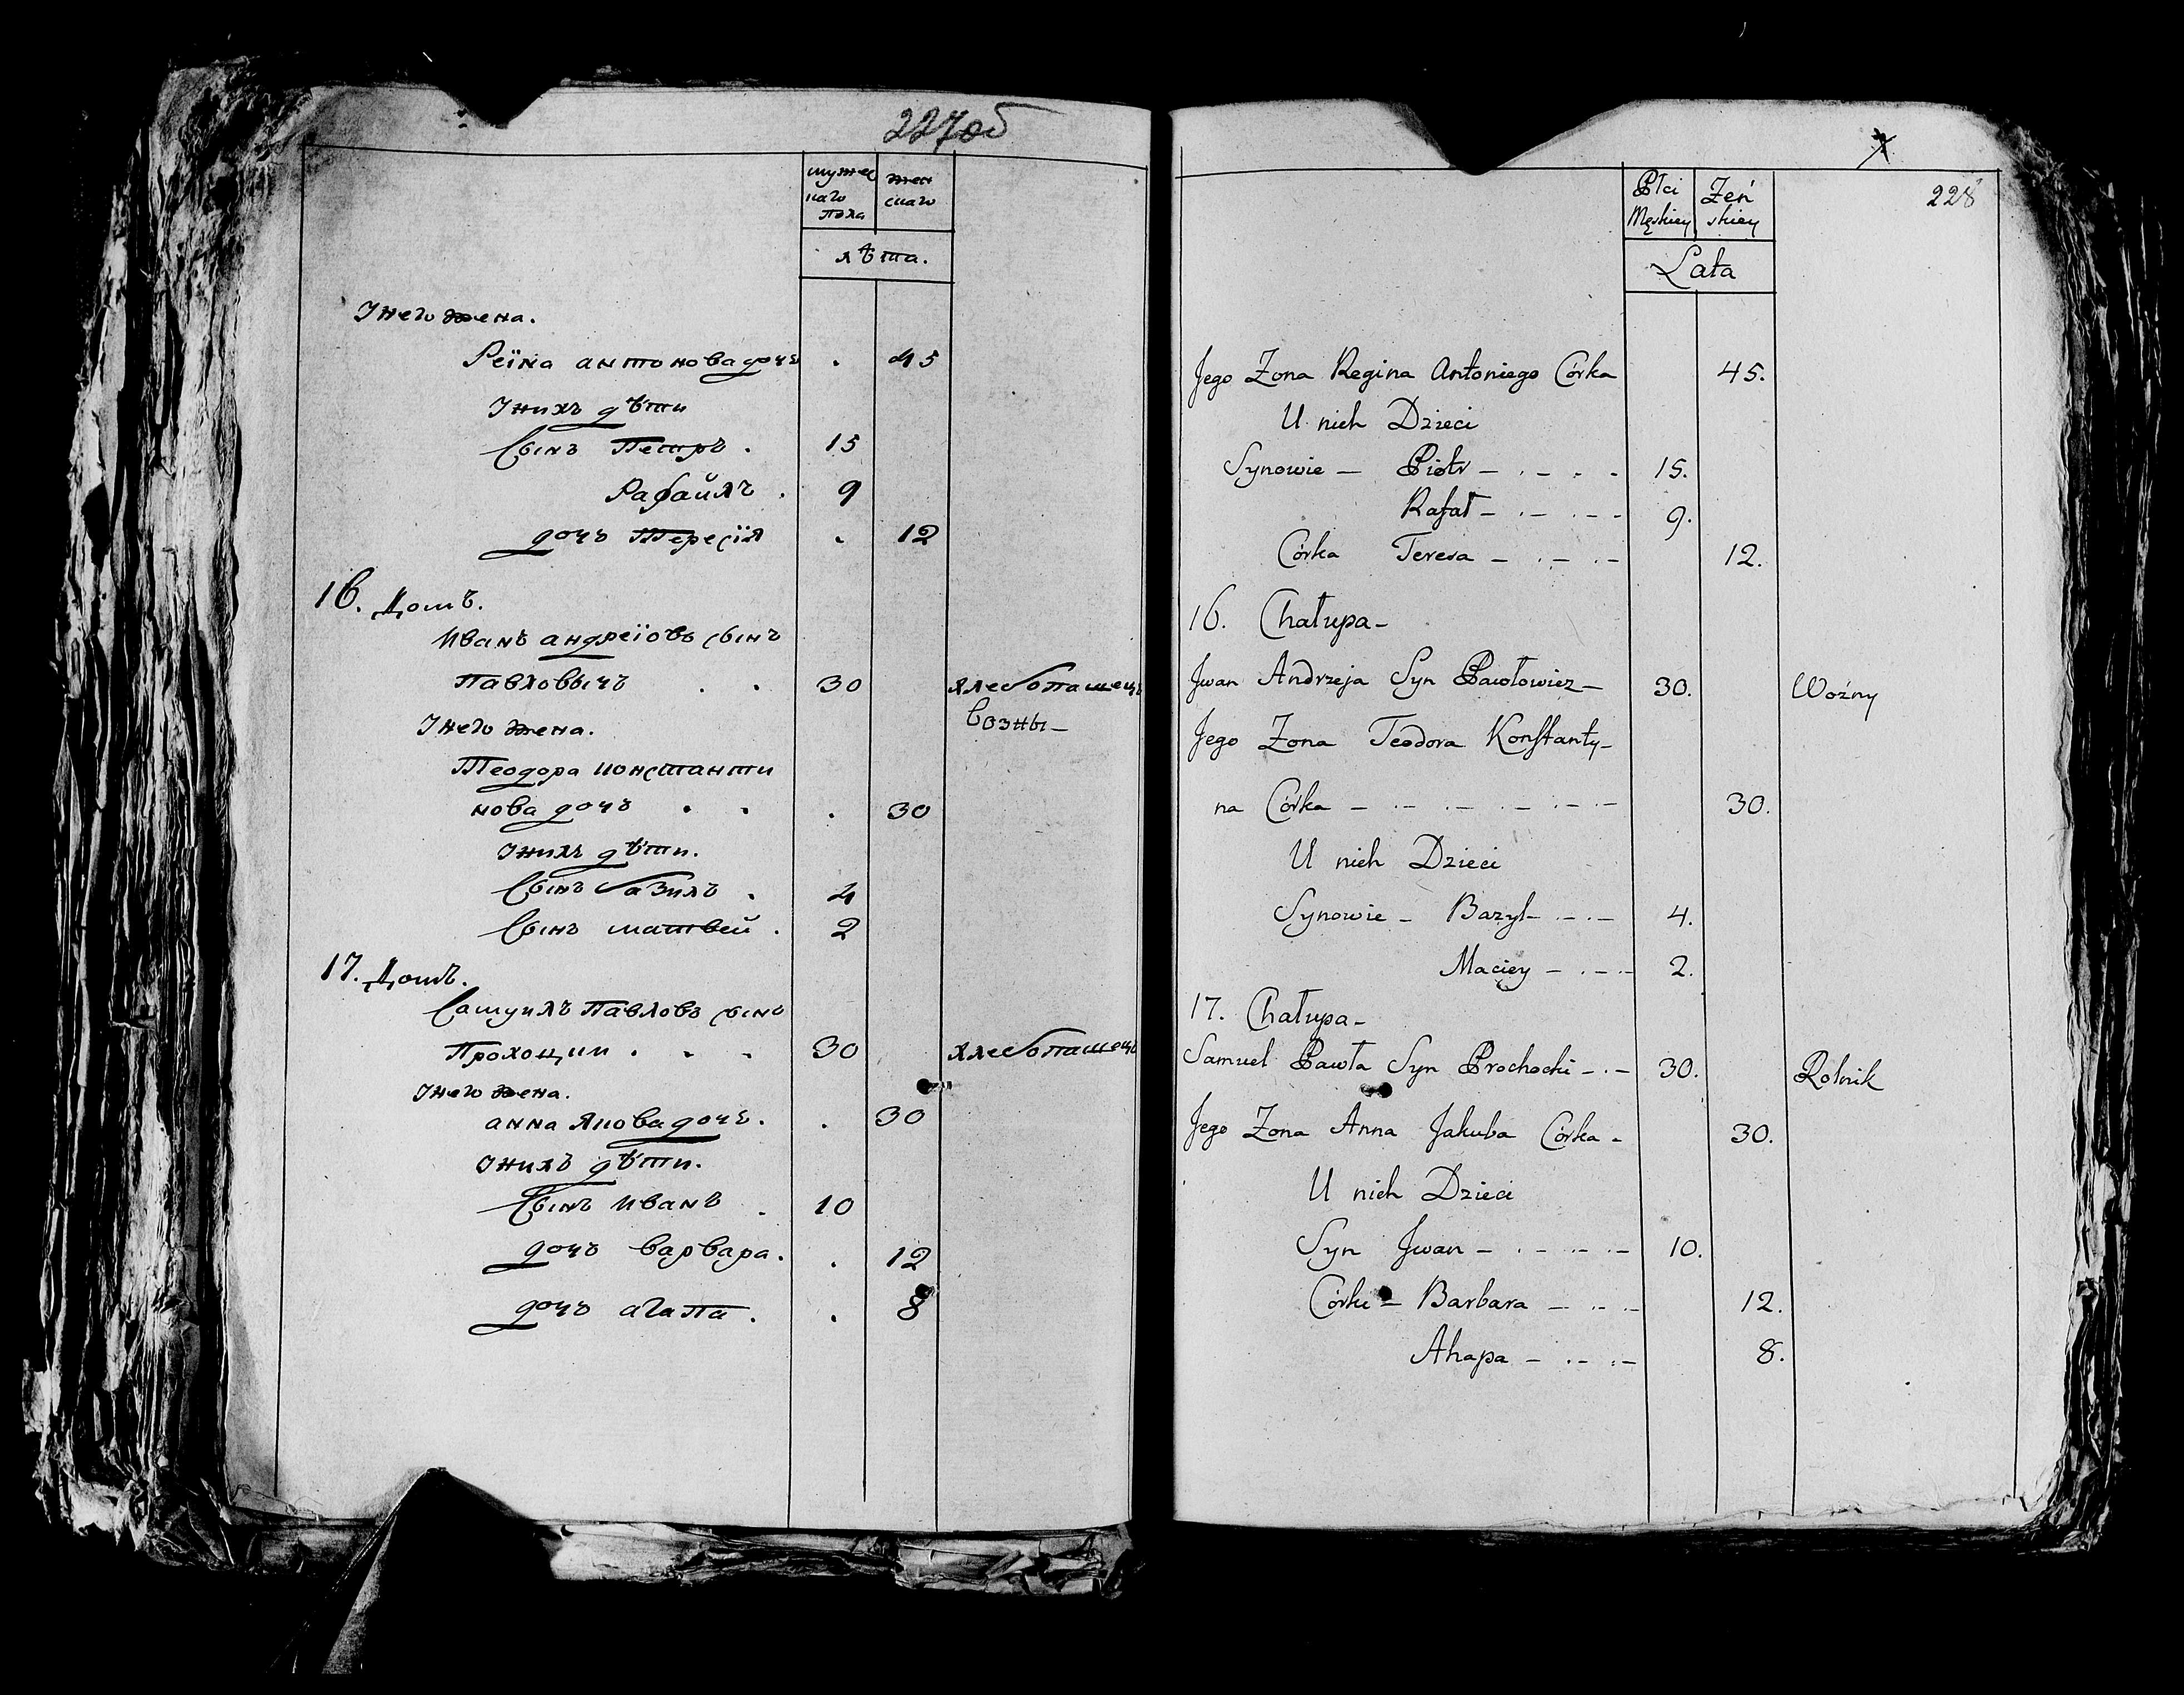 227об
мужес
каго
пола
жен
скаго
лѣта.
Унего жена.
Реїна антонова дочь . 45
Унихъ дѣти
Сынъ Петръ . 15
Рафаилъ . 9
дочь Тересїя . 12
16. Домъ.
Иванъ андреїовъ сынъ
Павловичъ . . 30 хлебопашецъ
возны –
Унего жена.
Теодора константи
нова дочь . . . 30
Унихъ дѣти.
Сынъ базилъ . 4
Сынъ матвей . 2
17. Домъ.
Самуилъ Павловъ сынъ
Прохоцки . . . 30 хлебопашецъ
Унего жена.
анна якова дочь . . 30
Унихъ дѣти.
Сынъ иванъ . 10
дочь варвара . . 12
дочь агапа . . 8
228
Płci
Męskiey
Żeń
skiey
Lata
Jego Zona Regina Antoniego Córka 45.
U nich Dzieci
Synowie – Piotr – . – . - 15.
Rafał – . – . – 9.
Córka Teresa – . – . – 12.
16. Chałupa –
Jwan Andrzeja Syn Pawłowicz – 30. Woźny
Jego Zona Teodora Konstanty-
na Córka – . – . – . – . – 30.
U nich Dzieci
Synowie – Bazyl – . – . – 4.
Maciey – . – . – 2.
17. Chałupa –
Samuel Pawła Syn Prochocki – . – 30. Rolnik
Jego Zona Anna Jakuba Córka – 30.
U nich Dzieci
Syn Jwan – . – . – . – 10.
Córki – Barbara – . – . – 12.
Ahapa – . – . – 8.